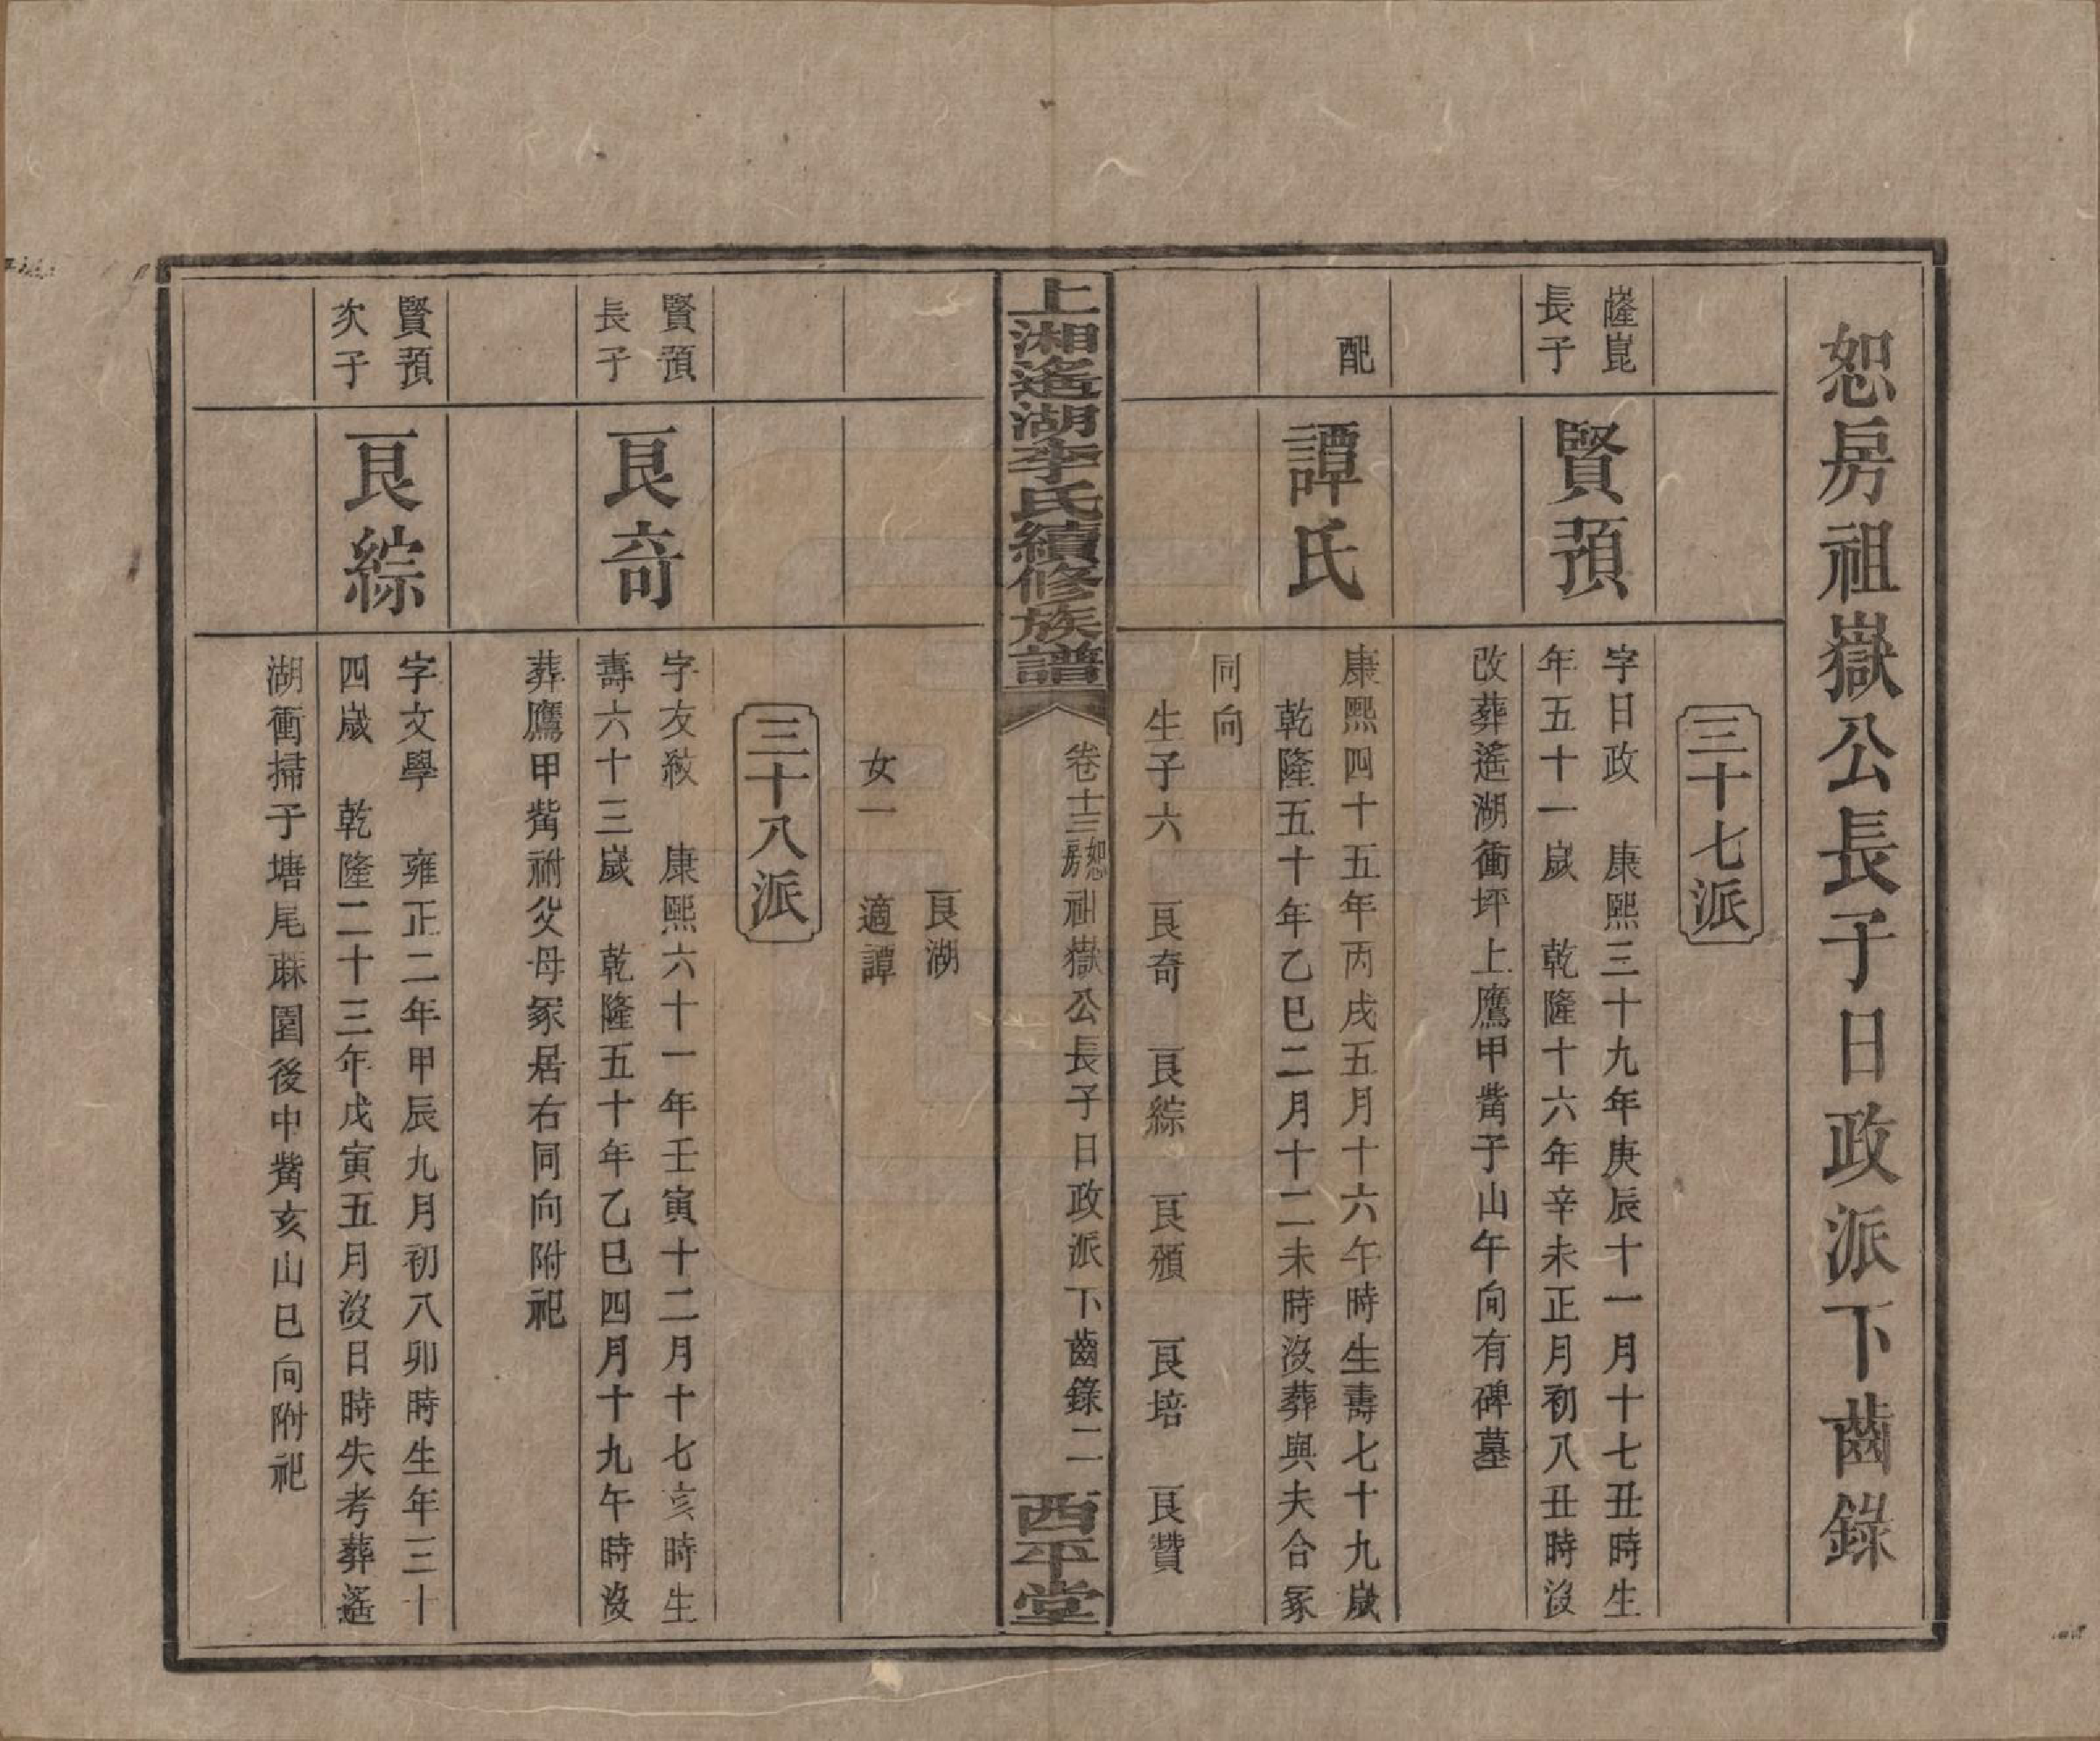 恕房祖嶽公長子日政派下齒錄
三十七派
隆崑
長子
賢預
字日政　康熙三十九年庚辰十一月十七丑時生
年五十一歲　乾隆十六年辛未正月初八丑時沒
改葬遙湖衝坪上鷹甲觜子山午向有碑墓
配
譚氏
康熙四十五年丙戌五月十六午時生壽七十九歲
乾隆五十年乙巳二月十二未時沒葬與夫合冢
同向
生子六　艮奇　艮綜　艮頒　艮培　艮贊
上湘遙湖李氏續修族譜
卷十三恕房祖嶽公長子日政派下齒錄二
西平堂
艮湖
女一　適譚
三十八派
賢預
長子
艮奇
字友紋　康熙六十一年壬寅十二月十七亥時生
壽六十三歲　乾隆五十年乙巳四月十九午時沒
葬鷹甲觜祔父母冢居右同向附祀
賢預
次子
艮綜
字文學　雍正二年甲辰九月初八卯時生年三十
四歲　乾隆二十三年戊寅五月沒日時失考葬遙
湖衝掃于塘尾蔴園後中觜亥山巳向附祀